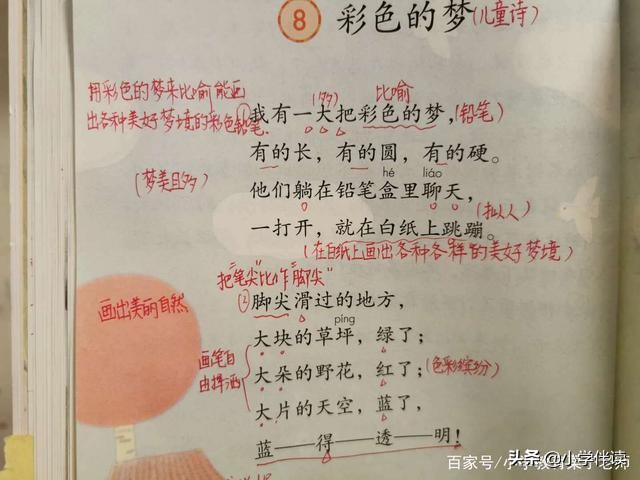 8 彩色的梦(儿童诗)
用彩色的梦来比喻能画
出各种美好梦境的彩色铅笔.
(多) 比喻
①我有一大把彩色的梦,(铅笔)
有的长，有的圆，有的硬。
(梦美且多)
hé liáo
他们躺在铅笔盒里聊天，
(拟人)
一打开，就在白纸上跳蹦。
(在白纸上画出各种各样的美好梦境)
把“笔尖”比作“脚尖”
②脚尖滑过的地方，
画出美丽自然
píng
大块的草坪，绿了；
画笔自
由挥洒
大朵的野花，红了；(色彩缤纷)
大片的天空，蓝了，
蓝——得——透——明！
百家号/小学教育菜子老师
头条@小学伴读